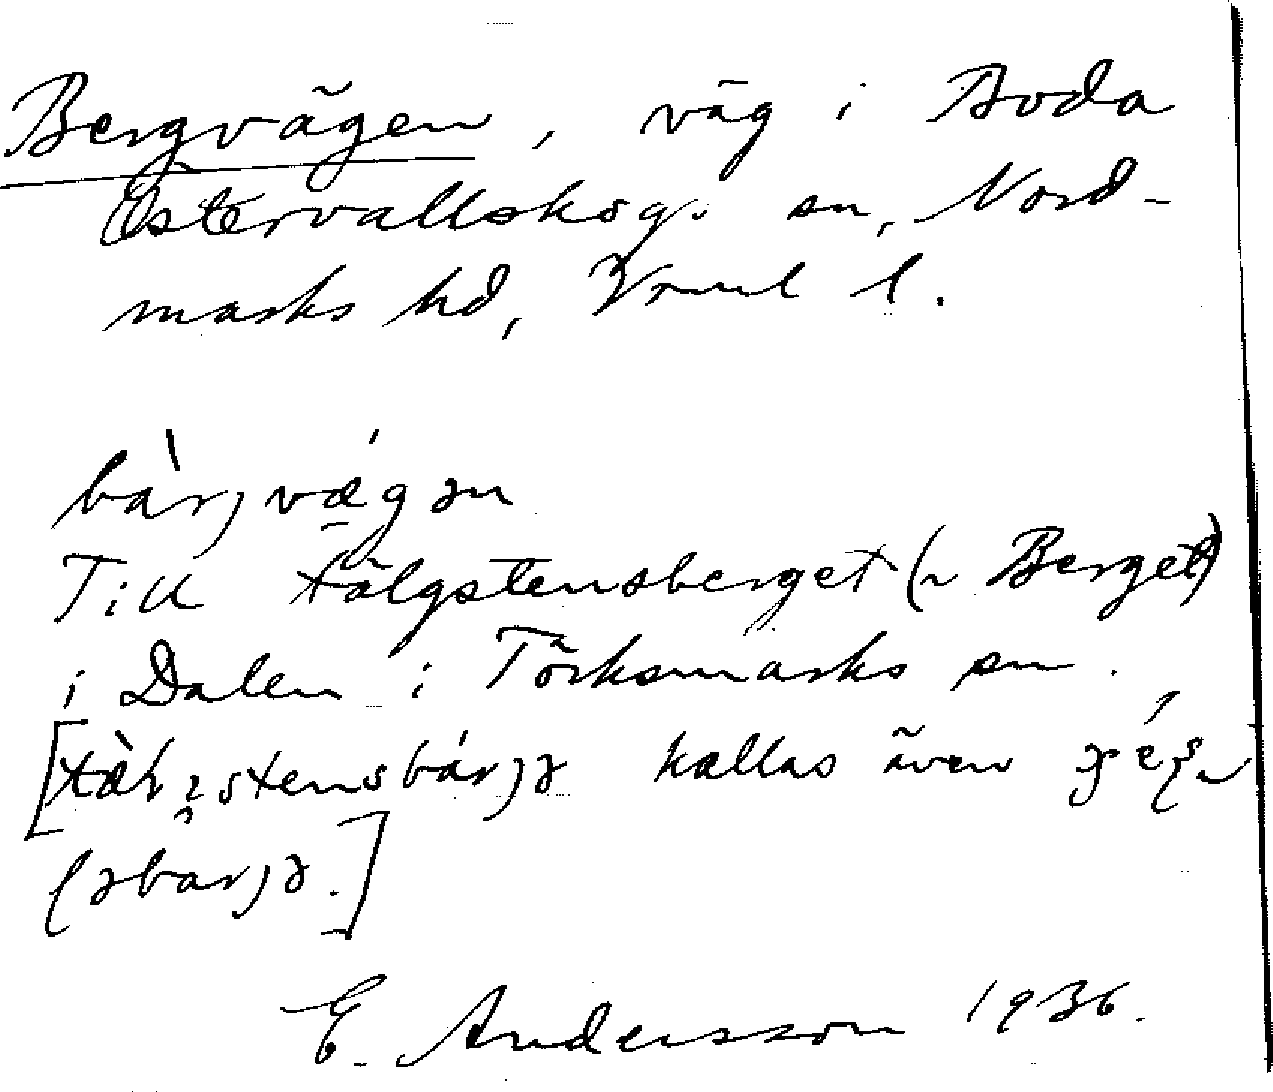 Bergvägen, väg i Boda
Östervallskogs sn, Nord-
marks hd, Vrml l.
bàrjvǽgən
Till Tälgstensberget (~ Berget)
i Dalen i Töcksmarks sn.
kallas även
E. Andersson 1936.